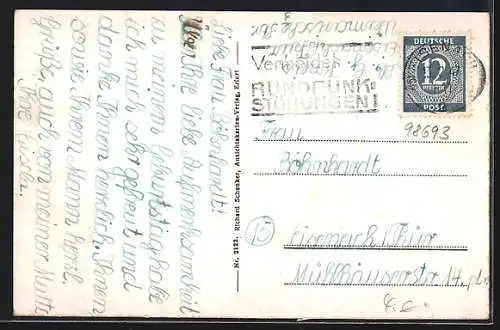 Liebe Frau Böhnhardt!
Über Ihre liebe Aufmerksamkeit
zu meinem Geburtstag habe
ich mich sehr gefreut und
danke Ihnen herzlich. Ihnen
sowie Ihrem Mann herzl.
Grüße, auch von meiner Mutti
Ihre Gisela.
Nr. 2122. Richard Schenker, Ansichtskarten-Verlag, Erfurt
Vermeidet
RUNDFUNK-
STÖRUNGEN!
DEUTSCHE
12
PFENNIG
POST
98693
Frau
Böhnhardt
15
Eisenach/Thür
Mühlhäuserstr. 14